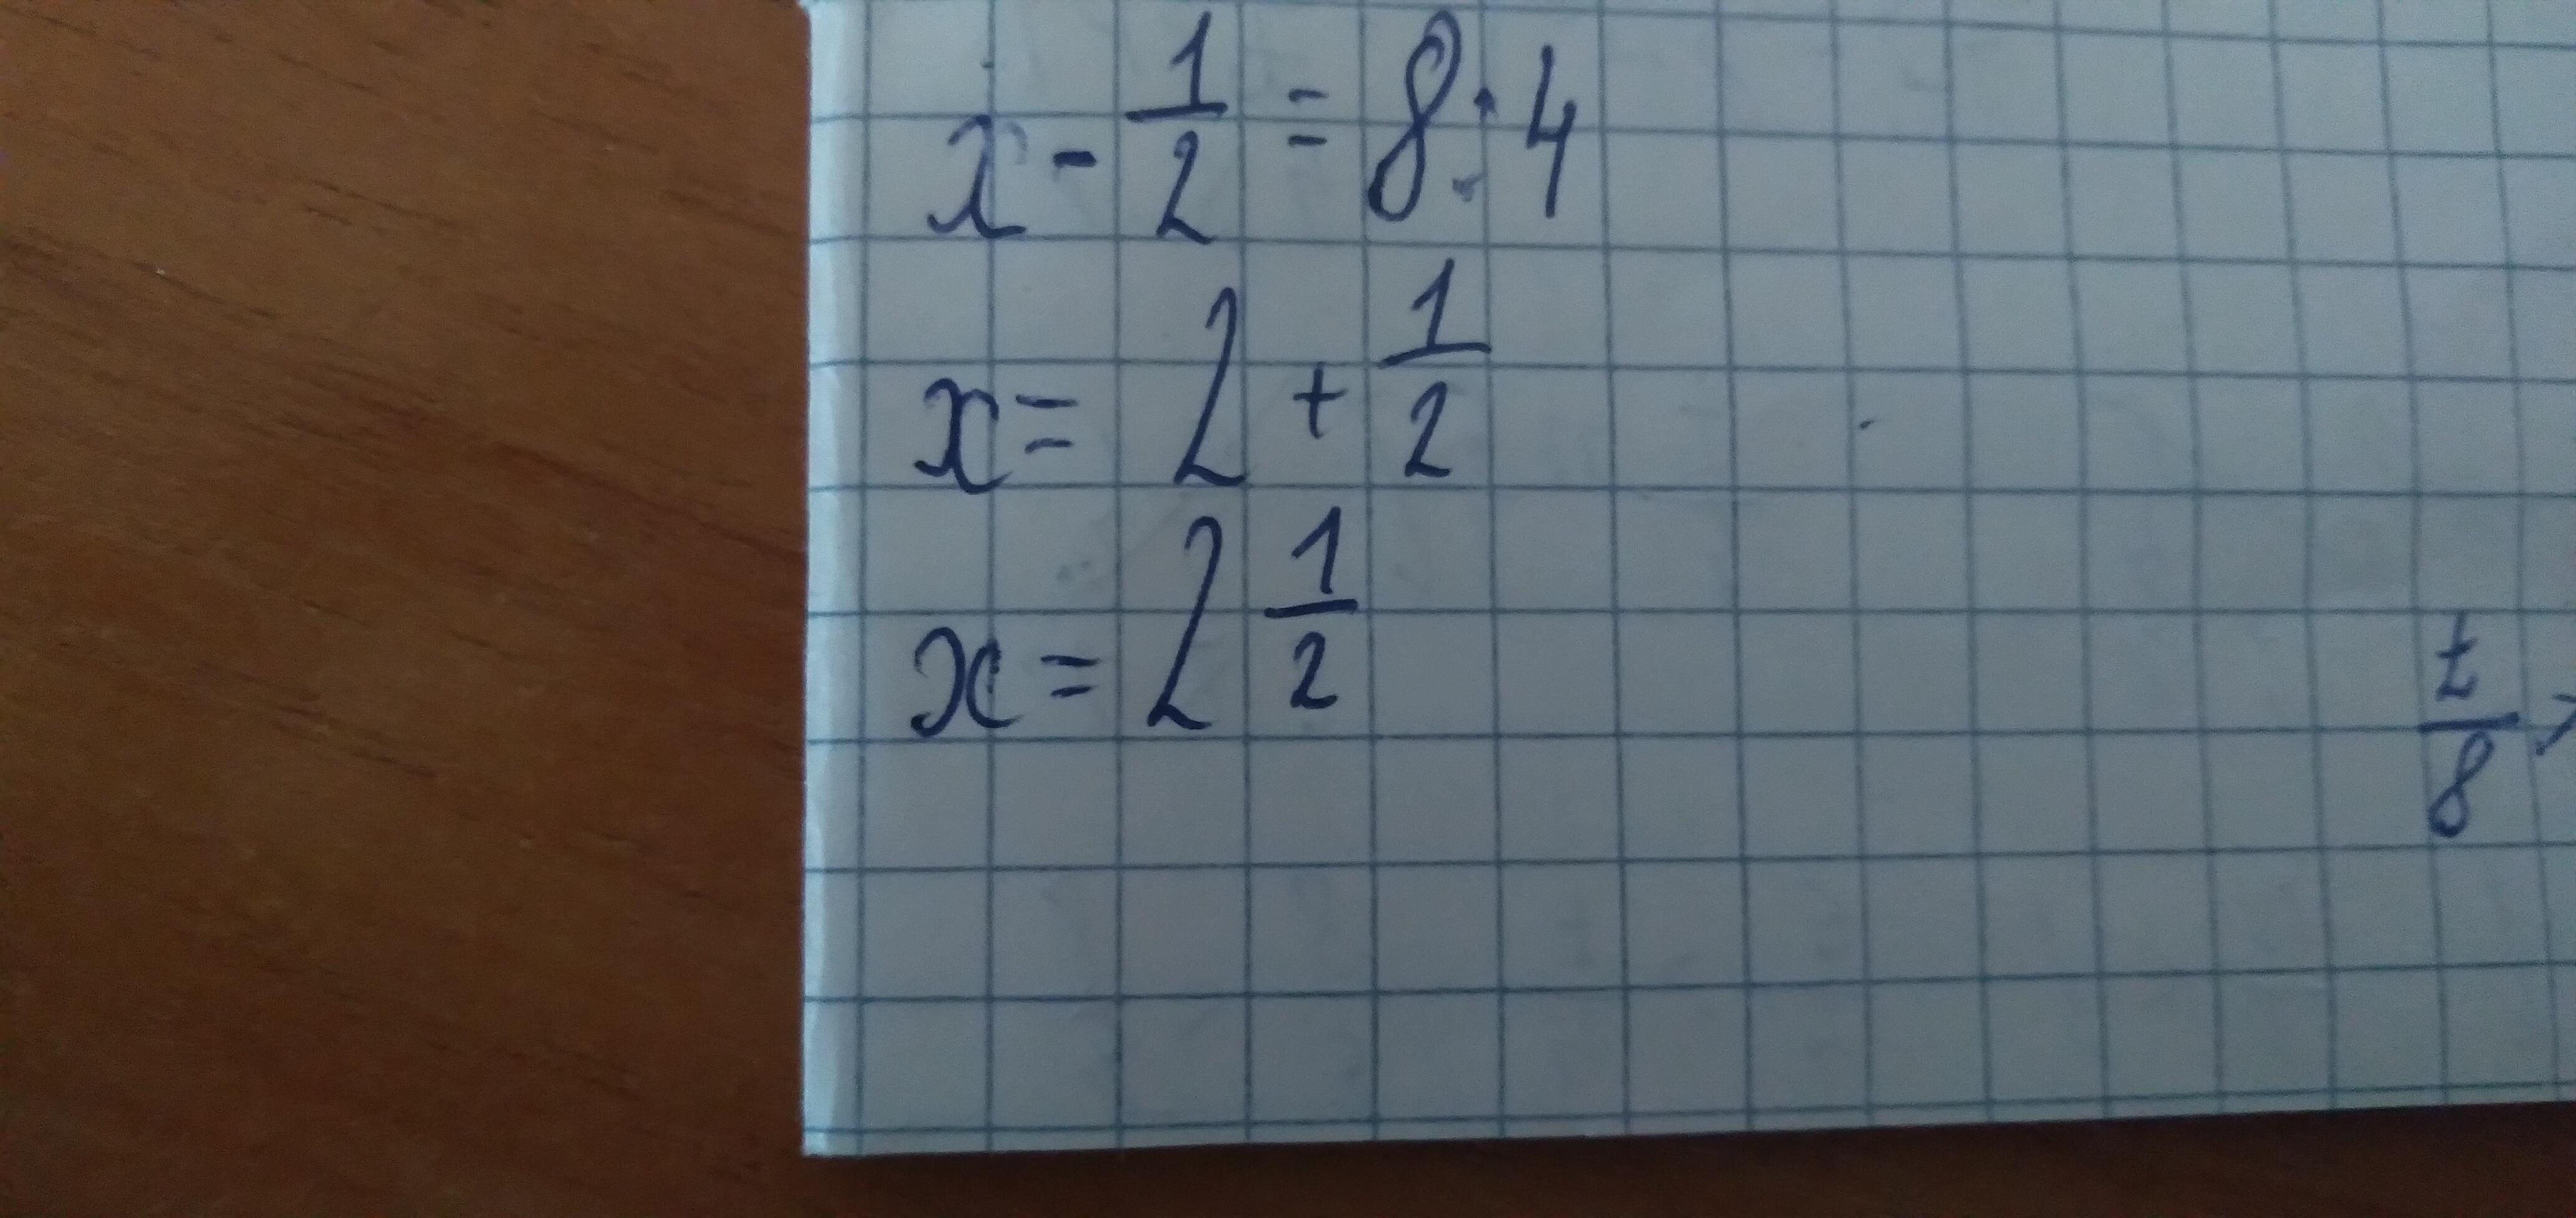 x - 1/2 = 8 : 4
x = 2 + 1/2
x = 2 1/2